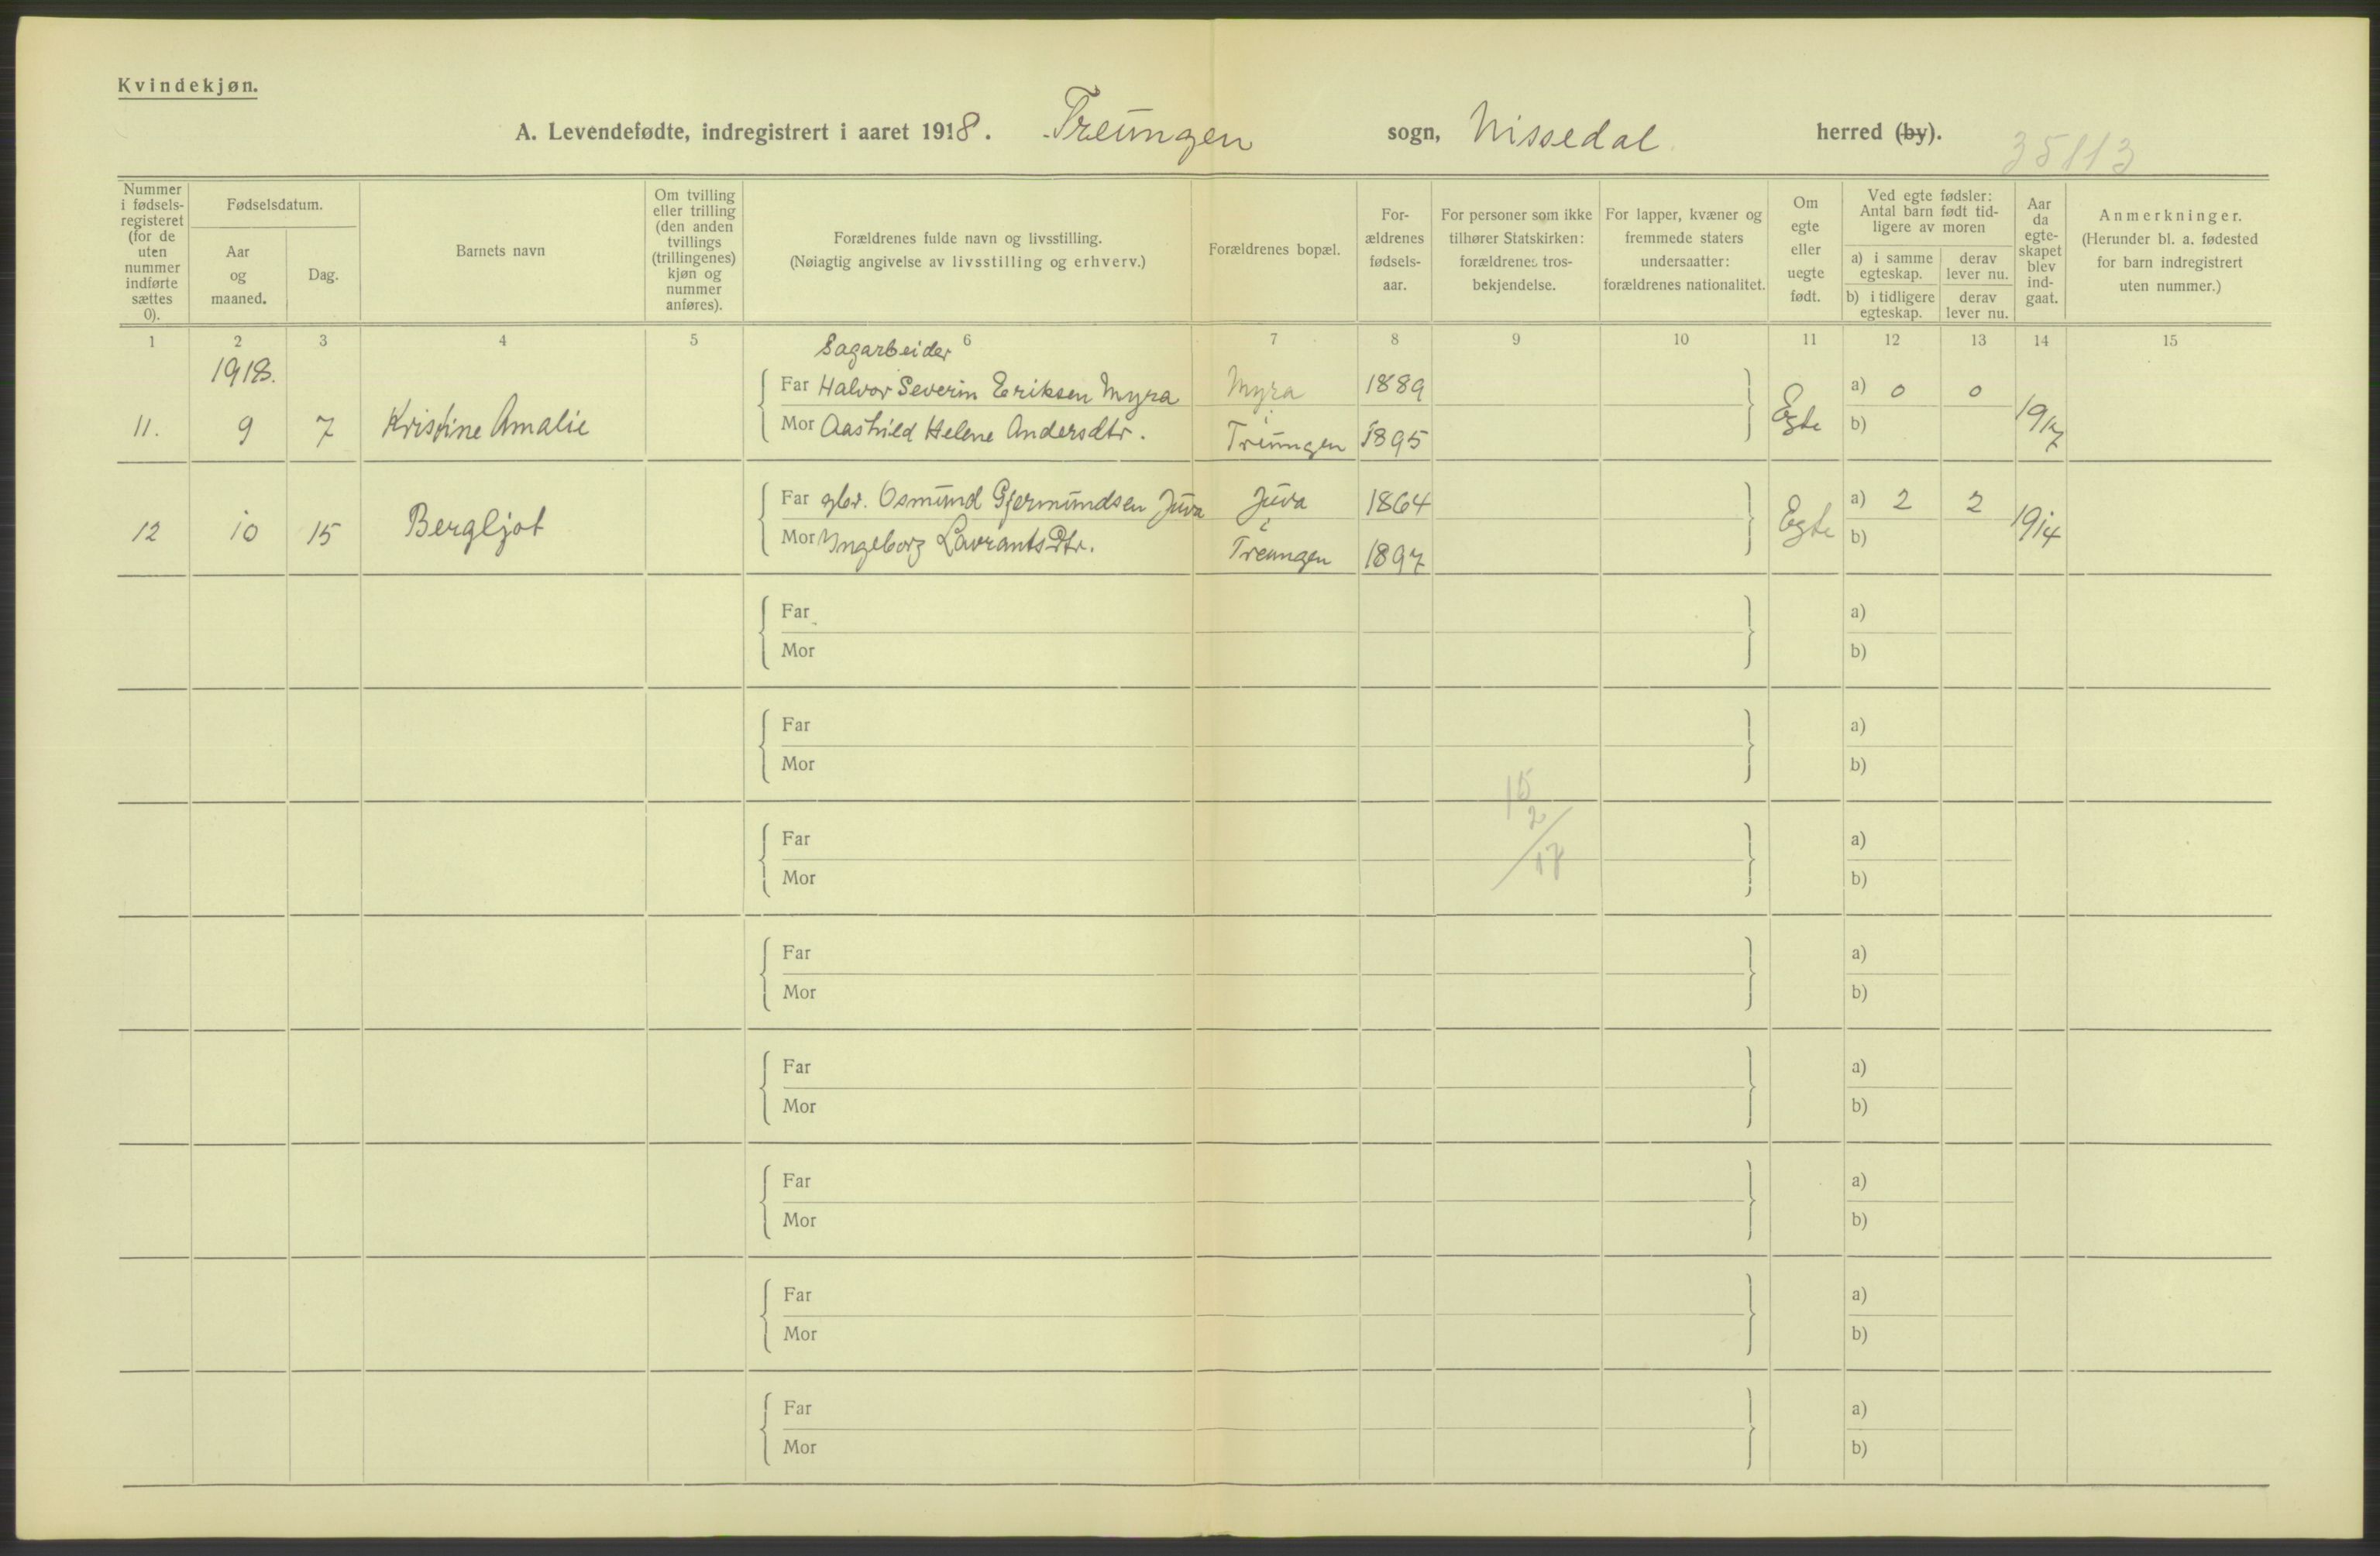 Kvindekjøn.
A. Levendefødte, indregistrert i aaret 1918. Treungen sogn, Nissedal herred (by).
35113
Nummer i fødselsregisteret (for de uten nummer indførte sættes 0).
Fødselsdatum.
Aar og maaned.
Dag.
Barnets navn
Om tvilling eller trilling (den anden tvillings (trillingenes) kjøn og nummer anføres).
Forældrenes fulde navn og livsstilling.
(Nøiagtig angivelse av livsstilling og erhverv.)
Forældrenes bopæl.
Forældrenes fødselsaar.
For personer som ikke tilhører Statskirken: forældrenes trosbekjendelse.
For lapper, kvæner og fremmede staters undersaatter: forældrenes nationalitet.
Om egte eller uegte født.
Ved egte fødsler: Antal barn født tidligere av moren
a) i samme egteskap.
derav lever nu.
b) i tidligere egteskap.
derav lever nu.
Aar da egteskapet blev indgaat.
Anmerkninger.
(Herunder bl. a. fødested for barn indregistrert uten nummer.)
1 2 3 4 5 6 7 8 9 10 11 12 13 14 15
1918.
Sagarbeider
11. 9 7 Kristine Amalie
Far Halvor Severin Eriksen Myra Myra 1889
Mor Aashild Helene Andersdtr. i Treungen 1895
Egte a) 0 0
b)
1917
12 10 15 Bergljot
Far gbr. Osmund Gjermundsen Juva Juva 1864
Mor Yngeborg Lavrantsdtr. i Treungen 1897
Egte a) 2 2
b)
1914
Far a)
Mor b)
Far a)
Mor b)
15
2
17
Far a)
Mor b)
Far a)
Mor b)
Far a)
Mor b)
Far a)
Mor b)
Far a)
Mor b)
Far a)
Mor b)